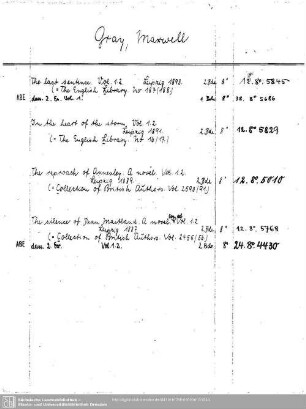 Gray, Maxwell
The last sentence. Vol. 1.2. Leipzig 1893. 2 Bde. 8° 12.8°.5845
(= The English Library. Nr 167/168)
ABE dass. 2. Ex. Vol. 1. 1 Bd. 8° 38. 8° 5686
In the heart of the storm. Vol. 1.2
Leipzig 1891. 2 Bde. 8° 12.8°.5829
(= The English Library. Nr 16/17)
The reproach of Annesley. A novel. Vol. 1.2
Leipzig 1889. 2 Bde. 8° 12.8°.5010
(= Collection of British Authors. Vol. 2590/91)
The silence of Dean Maitland. A novel Vol. 1.2
Leipzig 1887. 2 Bde. 8° 12. 8°. 5768
(= Collection of British Authors. Vol. 2455/56)
ABE dass. 2. Ex. Vol. 1.2. 2 Bde. 8° 24.8°.4430